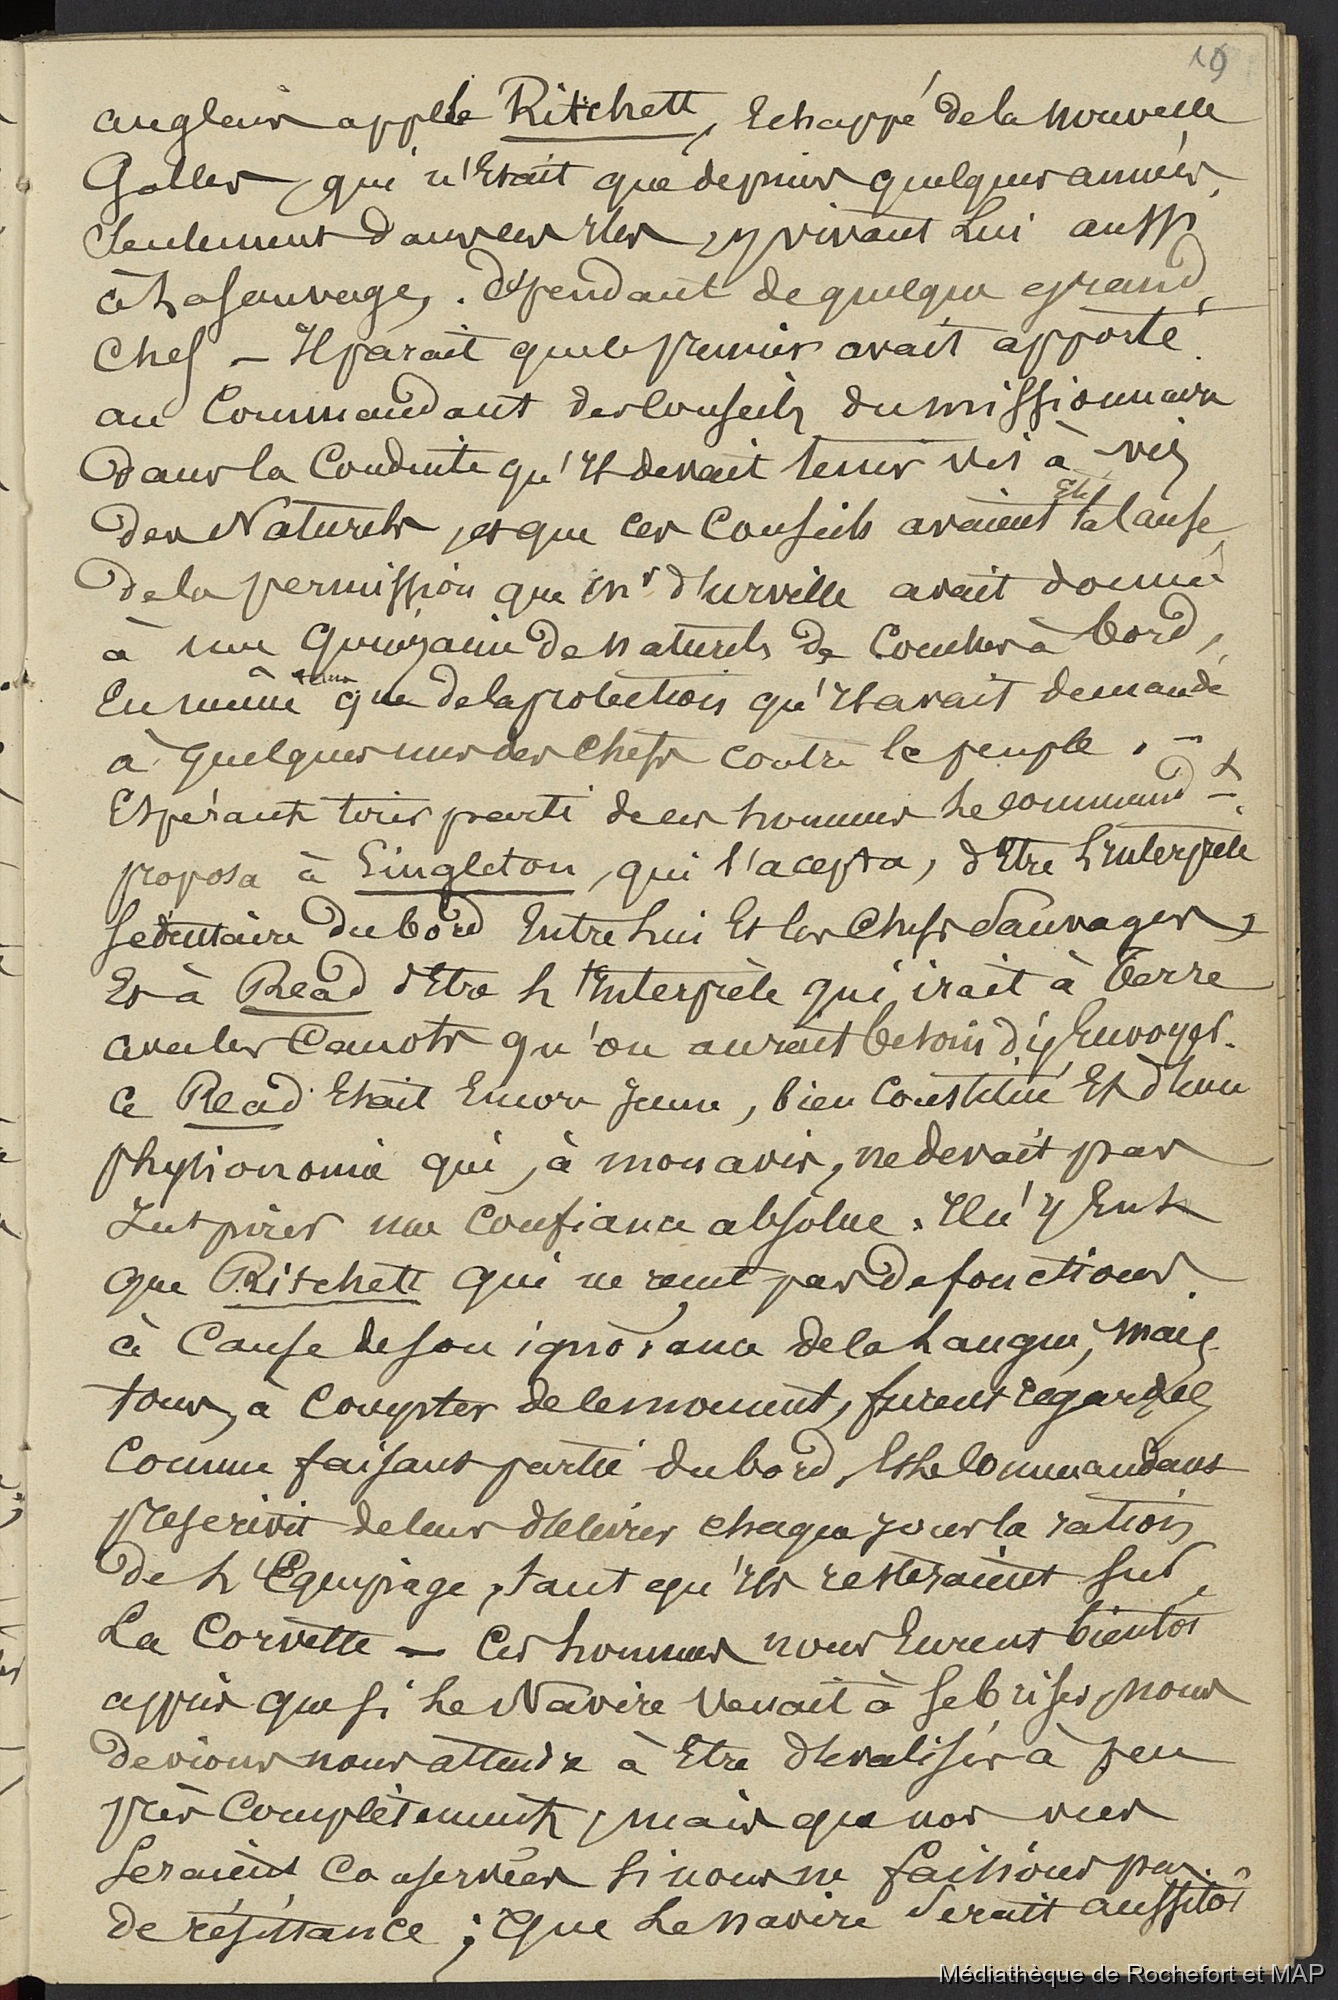 19
anglais appelé Ritchett, Echappé de la nouvelle
Galles, qui n'Etait que depuis quelques années,
Seulement dans les Iles, y vivant Lui aussi
à La Sauvage, dépendant de quelque grand
Chef – Il parait que le premier avait apporté
au Commandant des Conseils du missionnaire
dans la Conduite qu'Il devait tenir vis à vis
des Naturels, et que ces Conseils avaient été la Cause
de la permission que Mr d'urville avait donné
à une quinzaine de naturels de Coucher à bord,
En même tems que de la protection qu'Il avait demandé
à quelques uns des Chefs contre le peuple. –
Espérant tirer parti de ces hommes Le commandt
proposa à Singleton, qui l'acepta, d'Etre L'Interprète
Sédentaire du bord Entre Lui Et les Chefs Sauvages,
Et à Read d'Etre L'Interprète qui irait à terre
avec les Canots qu'on aurait besoin d'y Envoyer.
Ce Read Etait Encore Jeune, bien Constitué Et d'une
physionomie qui, à mon avis, ne devait pas
Inspirer une Confiance absolue. Il n'y Eut
que Ritchett qui ne reçut pas de fonctions
à Cause de Son ignorance de la Langue, mais
tous, à Compter de ce moment, furent regardés
Comme faisant partie du bord, Et Le Commandant
prescrivit de leur délivrer chaque jour la ration
de L'Equipage, tant qu'Ils resteraient Sur
La Corvette – Ces hommes nous Eurent bientôt
appris que Si Le Navire Venait à Se briser, nous
devions nous attendre à Etre dévalisés à peu
près Complètement, mais que nos vies
Seraient Conservées Si nous ne faisions pas
de résistance ; que Le navire Serait aussitôt
Médiathèque de Rochefort et MAP